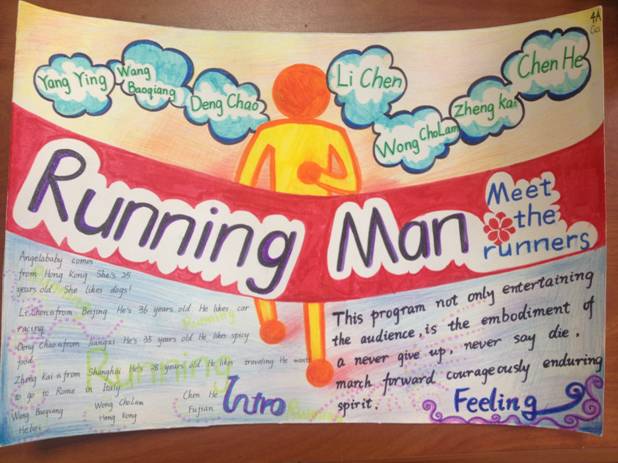 4A
Yang Ying
Wang
Baoqiang
Deng Chao
Li Chen
Wong ChoLam
Zheng kai
Chen He
Running Man
Meet
the
runners
Angelababy comes
from Hong Kong She's 25
years old. She likes dogs!
Li chen is from Beijing. He's 36 years old He likes car
racing
Deng Chao is from Jiangxi He's 35 years old He likes spicy
food
Zheng Kai is from Shanghai He's 28 years old He likes traveling He wants
to go to Rome in Italy
Wang Baoqiang Wong ChoLam Chen He
Hebei Hong Kong Fujian
Running
Intro
This program not only entertaining
the audience, is the embodiment of
a never give up, never say die,
march forward courageously enduring
spirit.
Feeling